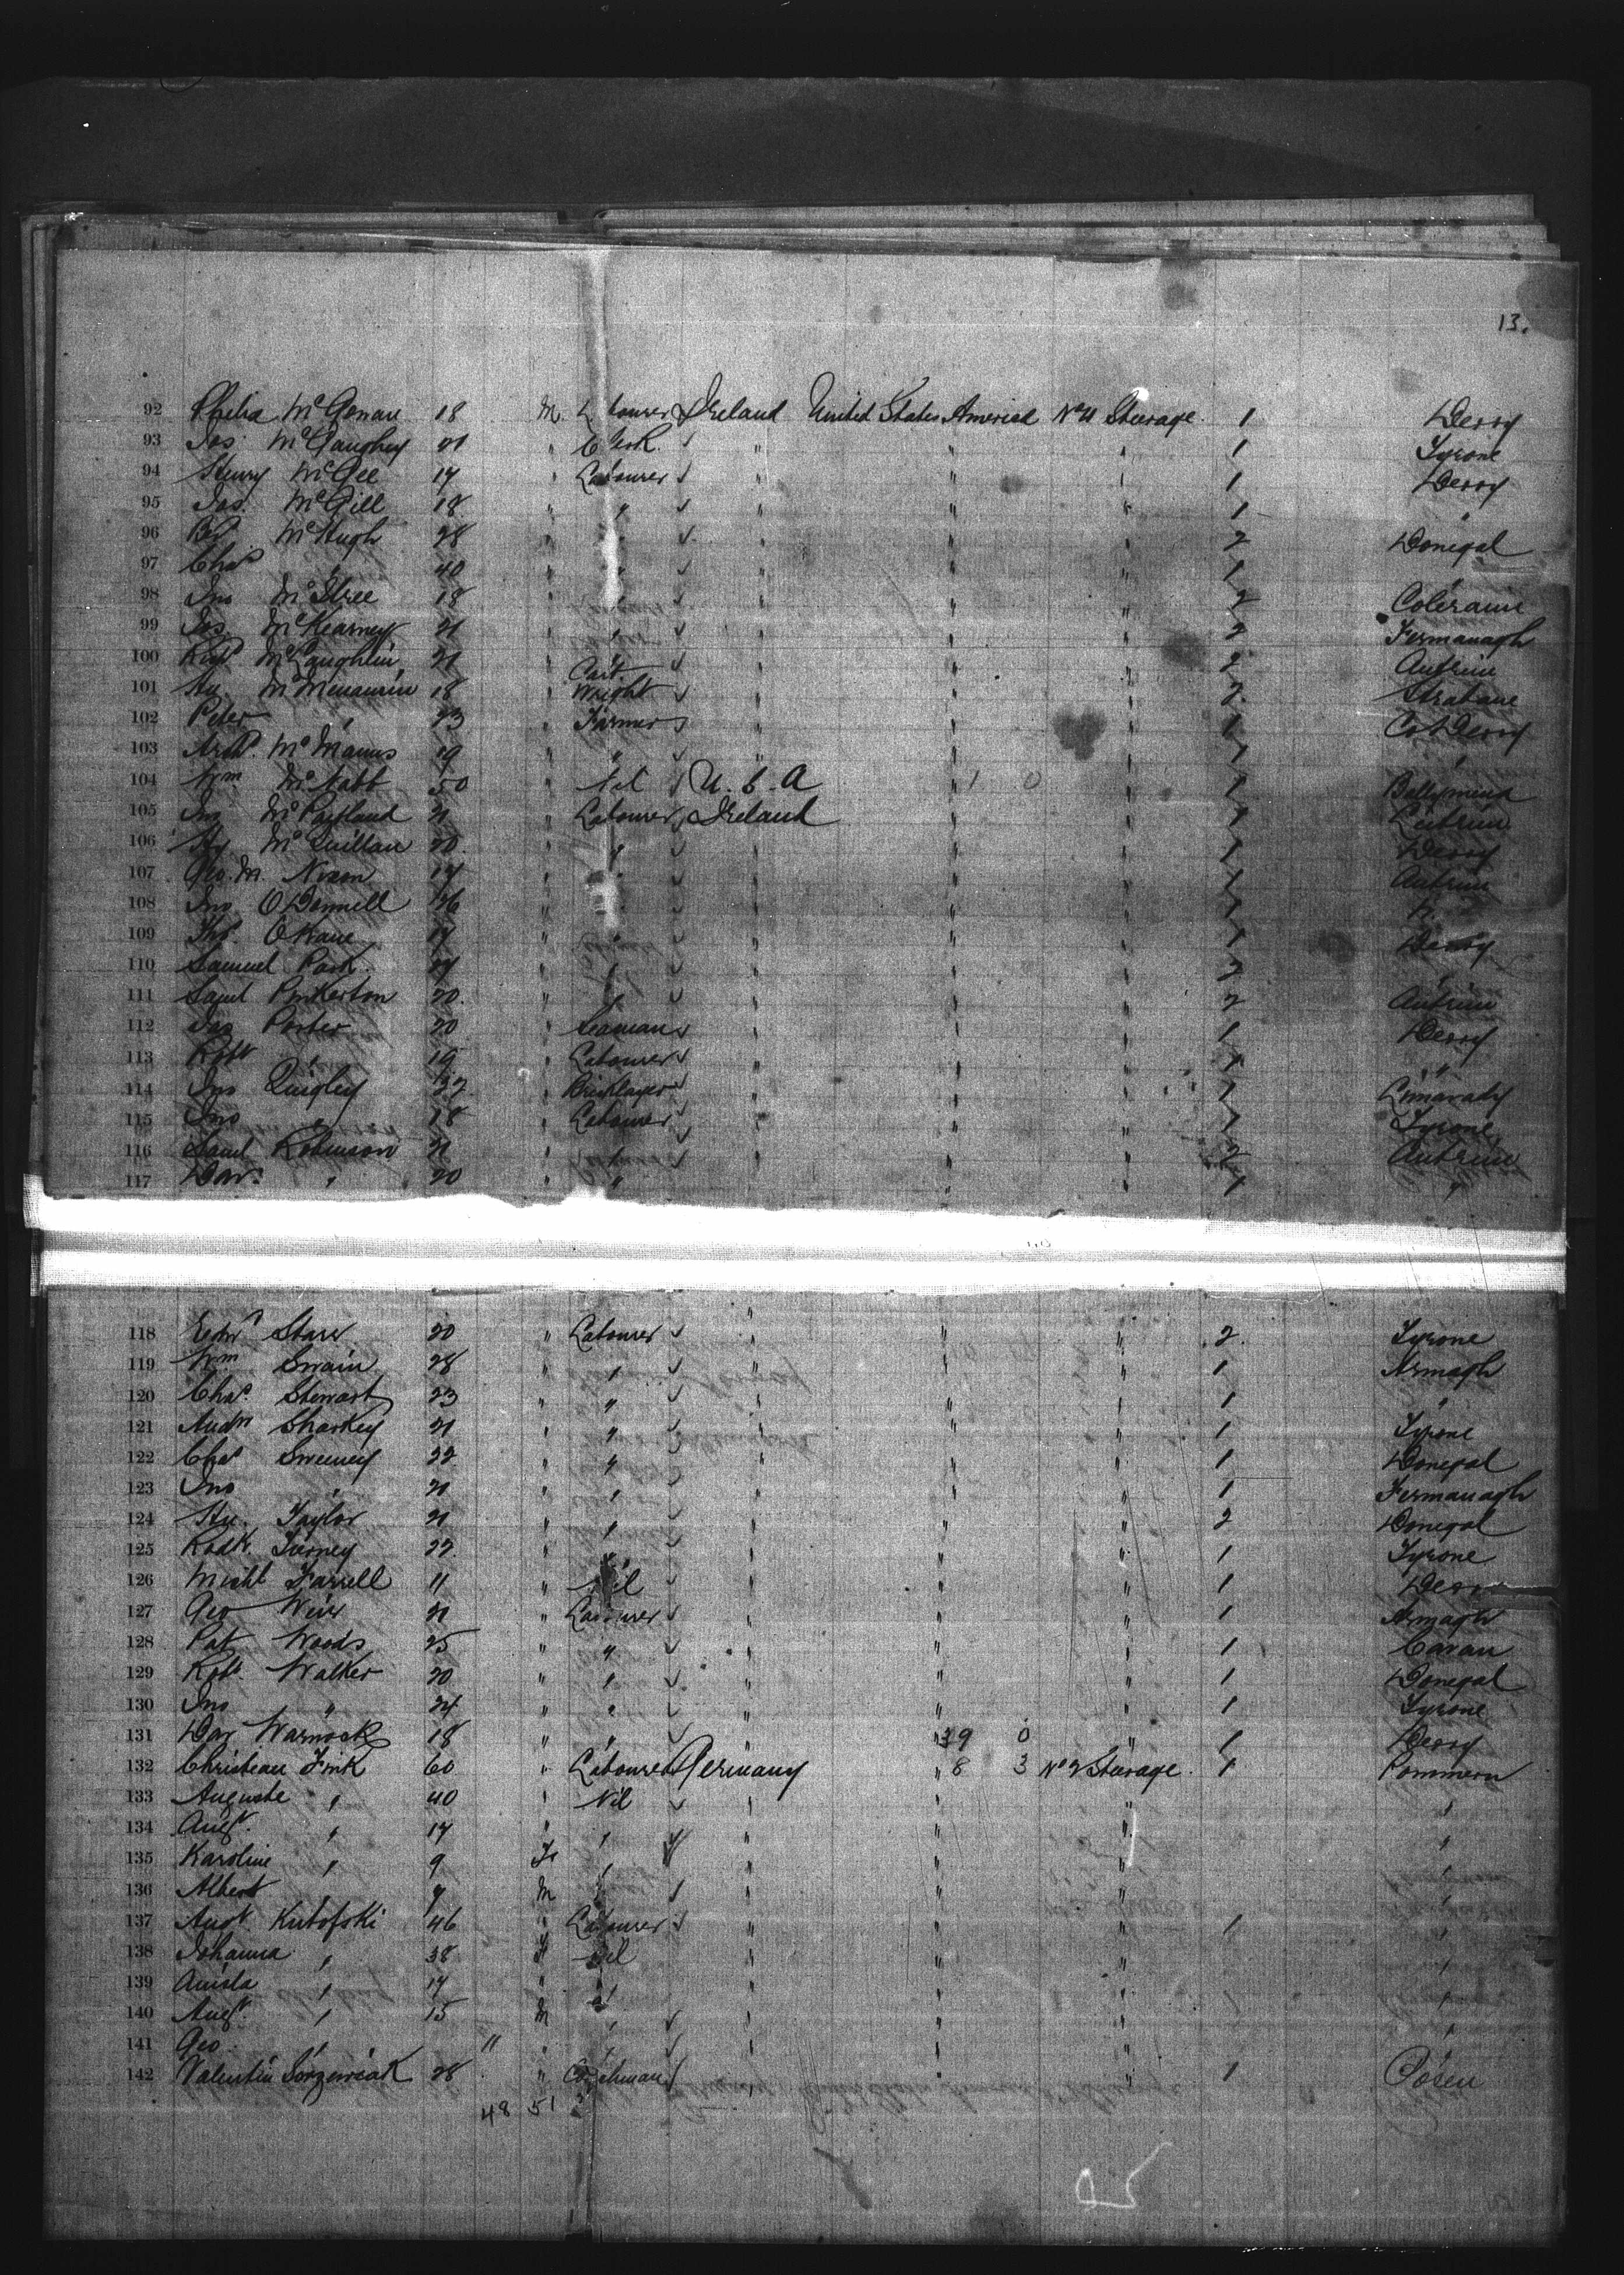 13.
92 McGonau 18 M. Labourer Ireland United States America No 4 Steerage 1 Derry
93 Jas. McGaughey 21 " Clerk " " " 1 Tyrone
94 Henry McGee 17 " Labourer " " " 1 Derry
95 Jas. McGill 18 " " " " " 1 "
96 McHugh 28 " " " " " 2 Donegal
97 Chas " 40 " " " " " 1 "
98 Jno 18 " " " " " 2 Coleraine
99 Jas. McKearney 21 " " " " " 2 Fermanagh
100 McLaughlin 21 " " " " " 2 Antrim
101 McMenamin 18 " Cart Wright " " " 2 Strabane
102 Peter " 23 " Farmer " " " 1 Co Derry
103 McManus 19 " " " " " 1 "
104 Wm McNabb 50 " Nil U.S.A 1 0 " 1 Ballymena
105 Jno McPartland 21 " Labourer Ireland " " 1 Leitrim
106 Hy McQuillan 20 " " " " " 1 Derry
107 Geo. M. Nixon 17 " " " " " 1 Antrim
108 Jno O'Donnell 26 " " " " " 1
109 O'Kane 17 " " " " " 1 Derry
110 Samuel Park 27 " " " " " 2 "
111 Saml Pinkerton 20 " " " " " 2 Antrim
112 Jas Porter 20 " Seaman " " " 1 Derry
113 Robt " 19 " Labourer " " " 1 "
114 Jno Quigley 32 " Bricklayer " " " 1 Limavady
115 Jno " 18 " Labourer " " " 1 Tyrone
116 Saml Robinson 21 " " " " " 2 Antrim
117 Dav. " 20 " " " " " 1 "
118 Edwd Starr 20 " Labourer " " " 2 Tyrone
119 Wm Swain 28 " " " " " 1 Armagh
120 Chas Stewart 23 " " " " " 1 "
121 Andw Sharkey 21 " " " " " 1 Tyrone
122 Chas Sweeney 22 " " " " " 1 Donegal
123 Jno " 21 " " " " " 1 Fermanagh
124 Taylor 21 " " " " " 2 Donegal
125 Rodk. Tierney 22 " " " " " 1 Tyrone
126 Michl Farrell 11 " Nil " " " 1 Derry
127 Geo Weir 21 " Labourer " " " 1 Armagh
128 Pat Woods 25 " " " " " 1 Cavan
129 Robt. Walker 20 " " " " " 1 Donegal
130 Jno " 24 " " " " " 1 Tyrone
131 Dav Warnock 18 " " " 39 0 " 1 Derry
132 Christian Fink 60 " Labourer Germany " 8 3 No 2 Steerage 1 Pommern
133 Auguste " 40 " Nil " " " "
134 Augt. " 17 " " " " " "
135 Karoline " 9 F " " " " "
136 Albert " 7 M " " " " "
137 Augt. Kutofski 46 " Labourer " " " 1 "
138 Johanna " 38 F Nil " " " "
139 " 17 " " " " " "
140 Augt. " 15 M " " " " "
141 Geo " 11 " " " " "
142 Valentin 28 " Coachman " " " 1 Posen
48 51